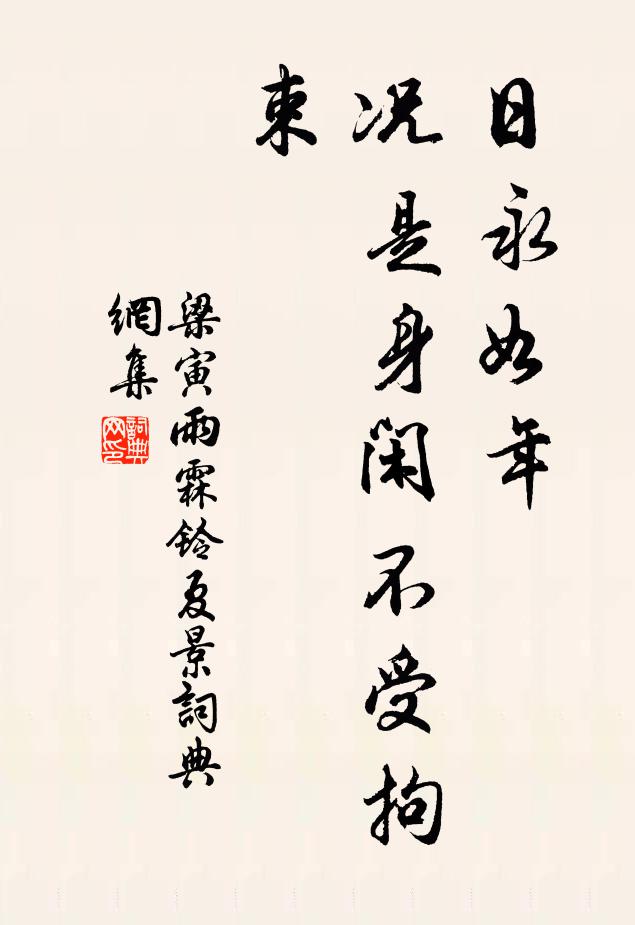 日永如年
况是身闲不受拘
束
梁寅雨霖铃夏景詞典
網集
詞典
网印